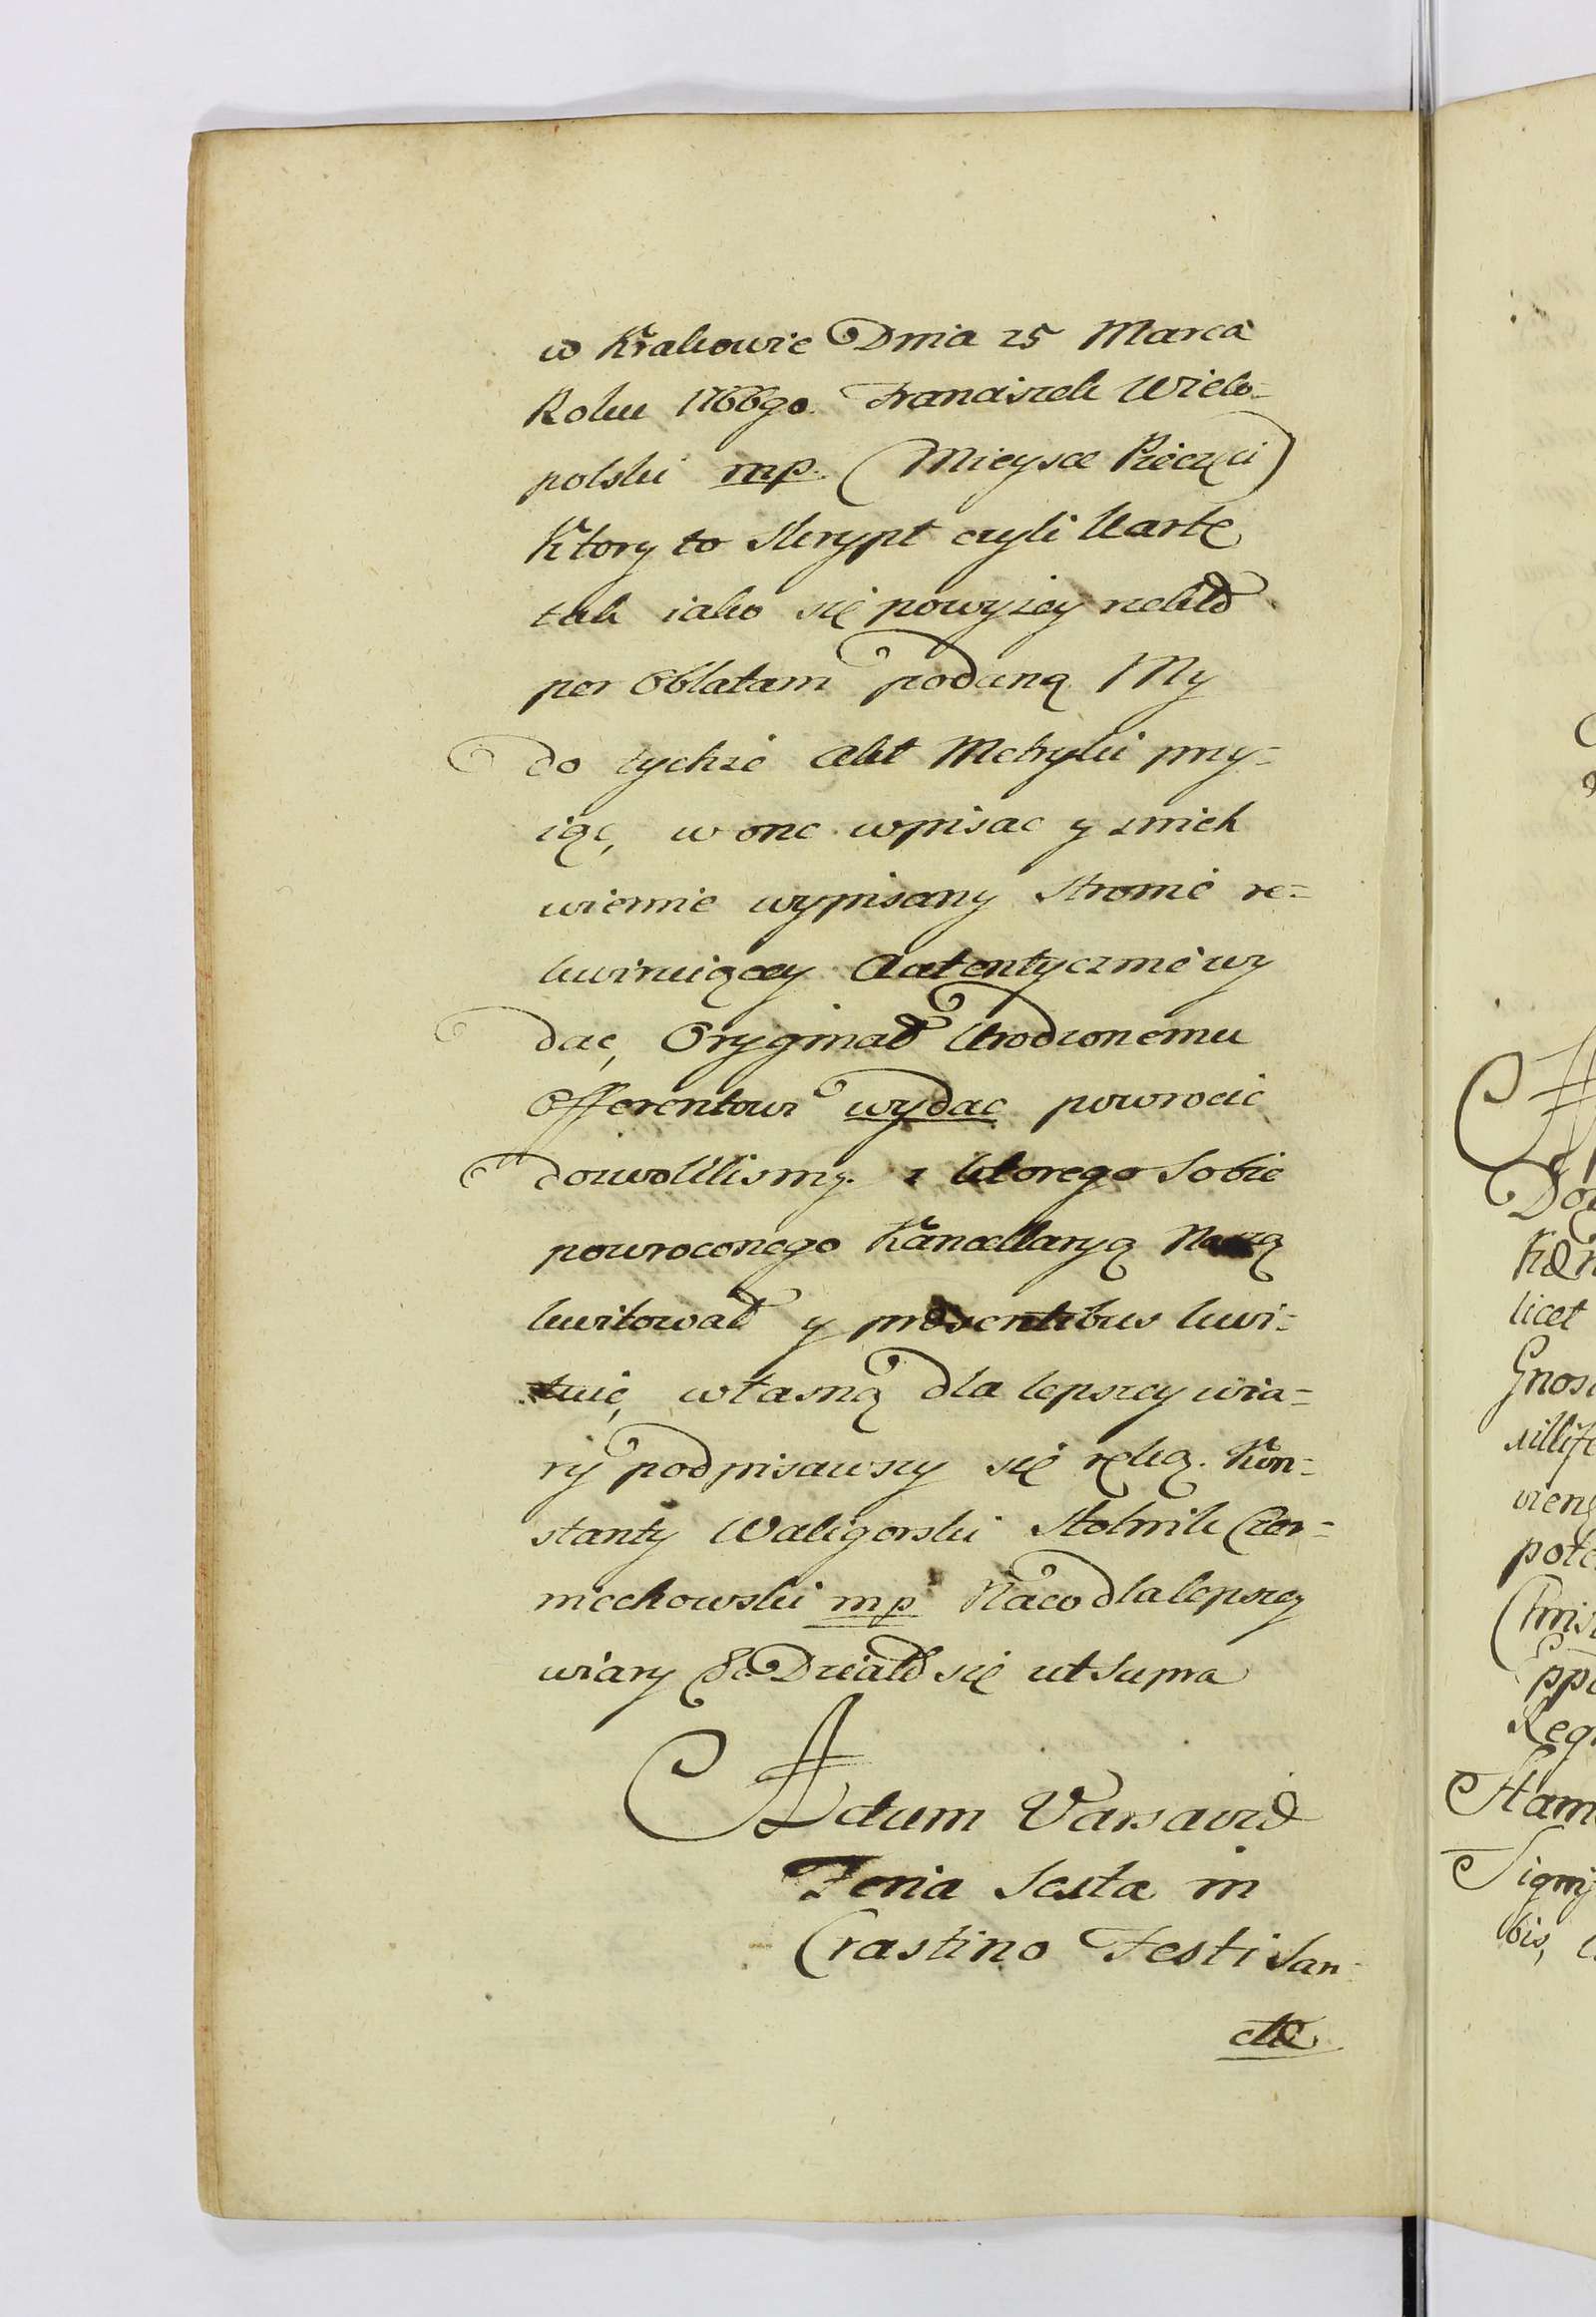 w Krakowie Dnia 25 Marca
Roku 1766go. Franciszek Wielo-
polski mp. (Mieysce Pieczęci)
Ktory to Skrypt czyli Kartę
tak iako się powyżey rzekło
per Oblatam podaną My
do tychże Akt Metryki przy-
iąć, w one wpisac y znich
wiernie wypisany Stronie re-
kwiruiącey Autentycznie wy
dać, Oryginał Urodzonemu
Offerentowi wydac powrocić
dozwoliliśmy. z ktorego Sobie
powroconego Kancellaryą Naszą
kwitował y præsentibus kwi-
tuie, własną dla lepszey wia-
ry podpisawszy się ręką. Kon-
stanty Waligorski Stolnik Czer-
niechowski mp Naco dla lepszey
wiary &c Działo się ut Supra
Actum Varsaviæ
Feria Sexta in
Crastino Festi San-
ctæ
Dog
licet
Gnos
xillife
pote
Chris
Eppo
Reg
Stam
Signi
bis,